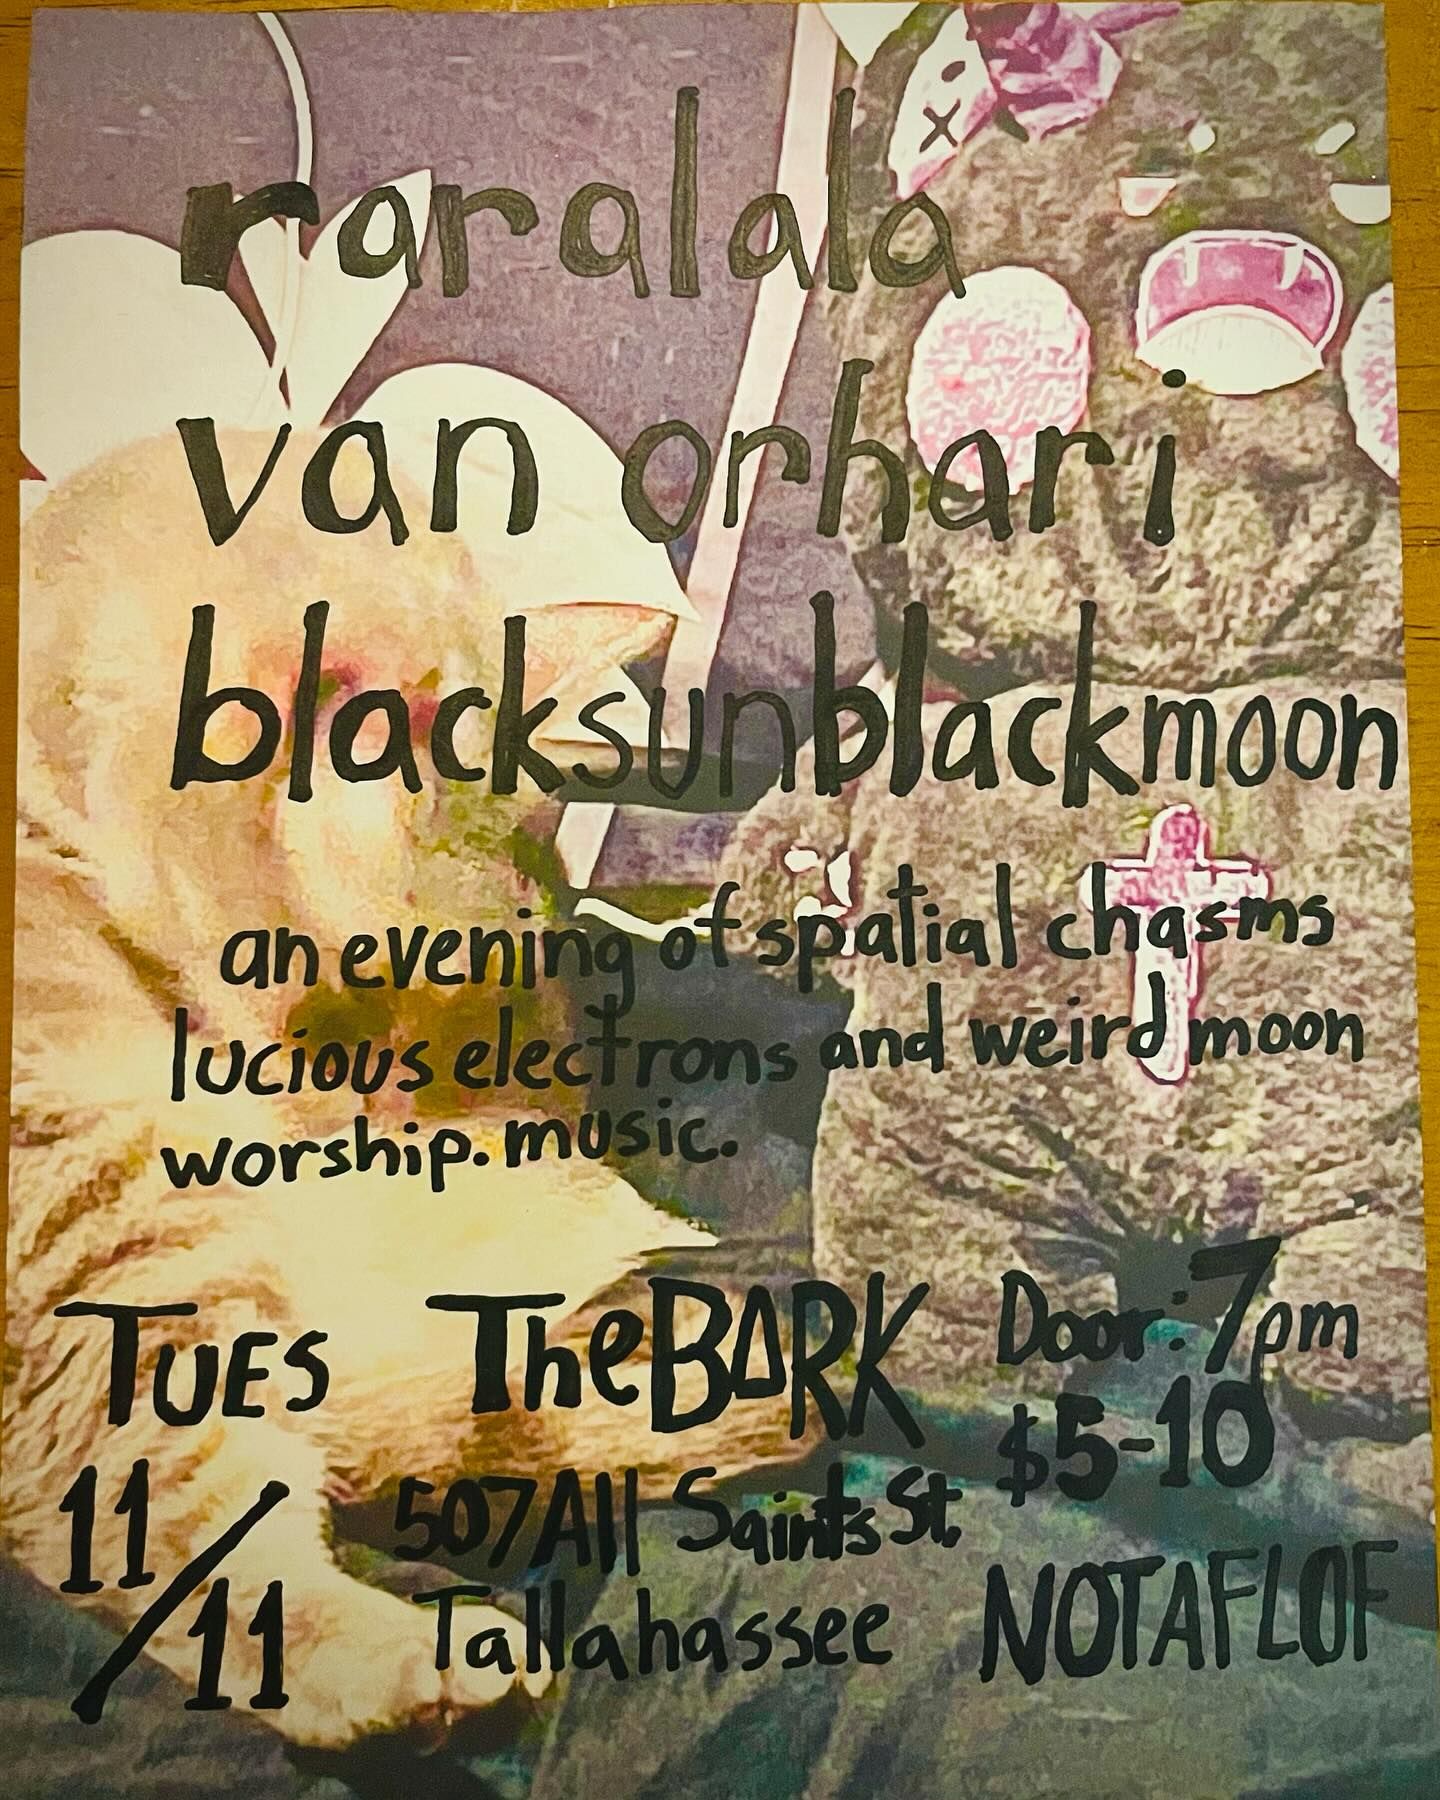 raralala
van orhari
blacksunblackmoon
an evening of spatial chasms
lucious electrons and weird moon
worship. music.
TUES
11/11
The BARK
507 All Saints St.
Tallahassee
Door: 7pm
$5-10
NOTAFLOF